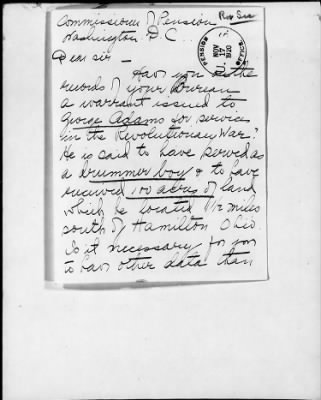 Commissioner of Pension Rev Sec
Washington D.C.
PENSION OFFICE
NOV 17 1920
Dear sir -
Have you in the
records of your Bureau
a warrant issued to
George Adams for service
in the Revolutionary War?
He is said to have served as
a drummer boy & to have
received 100 acres of land
which he located 1½ miles
south of Hamilton Ohio.
Is it necessary for you
to have other data than